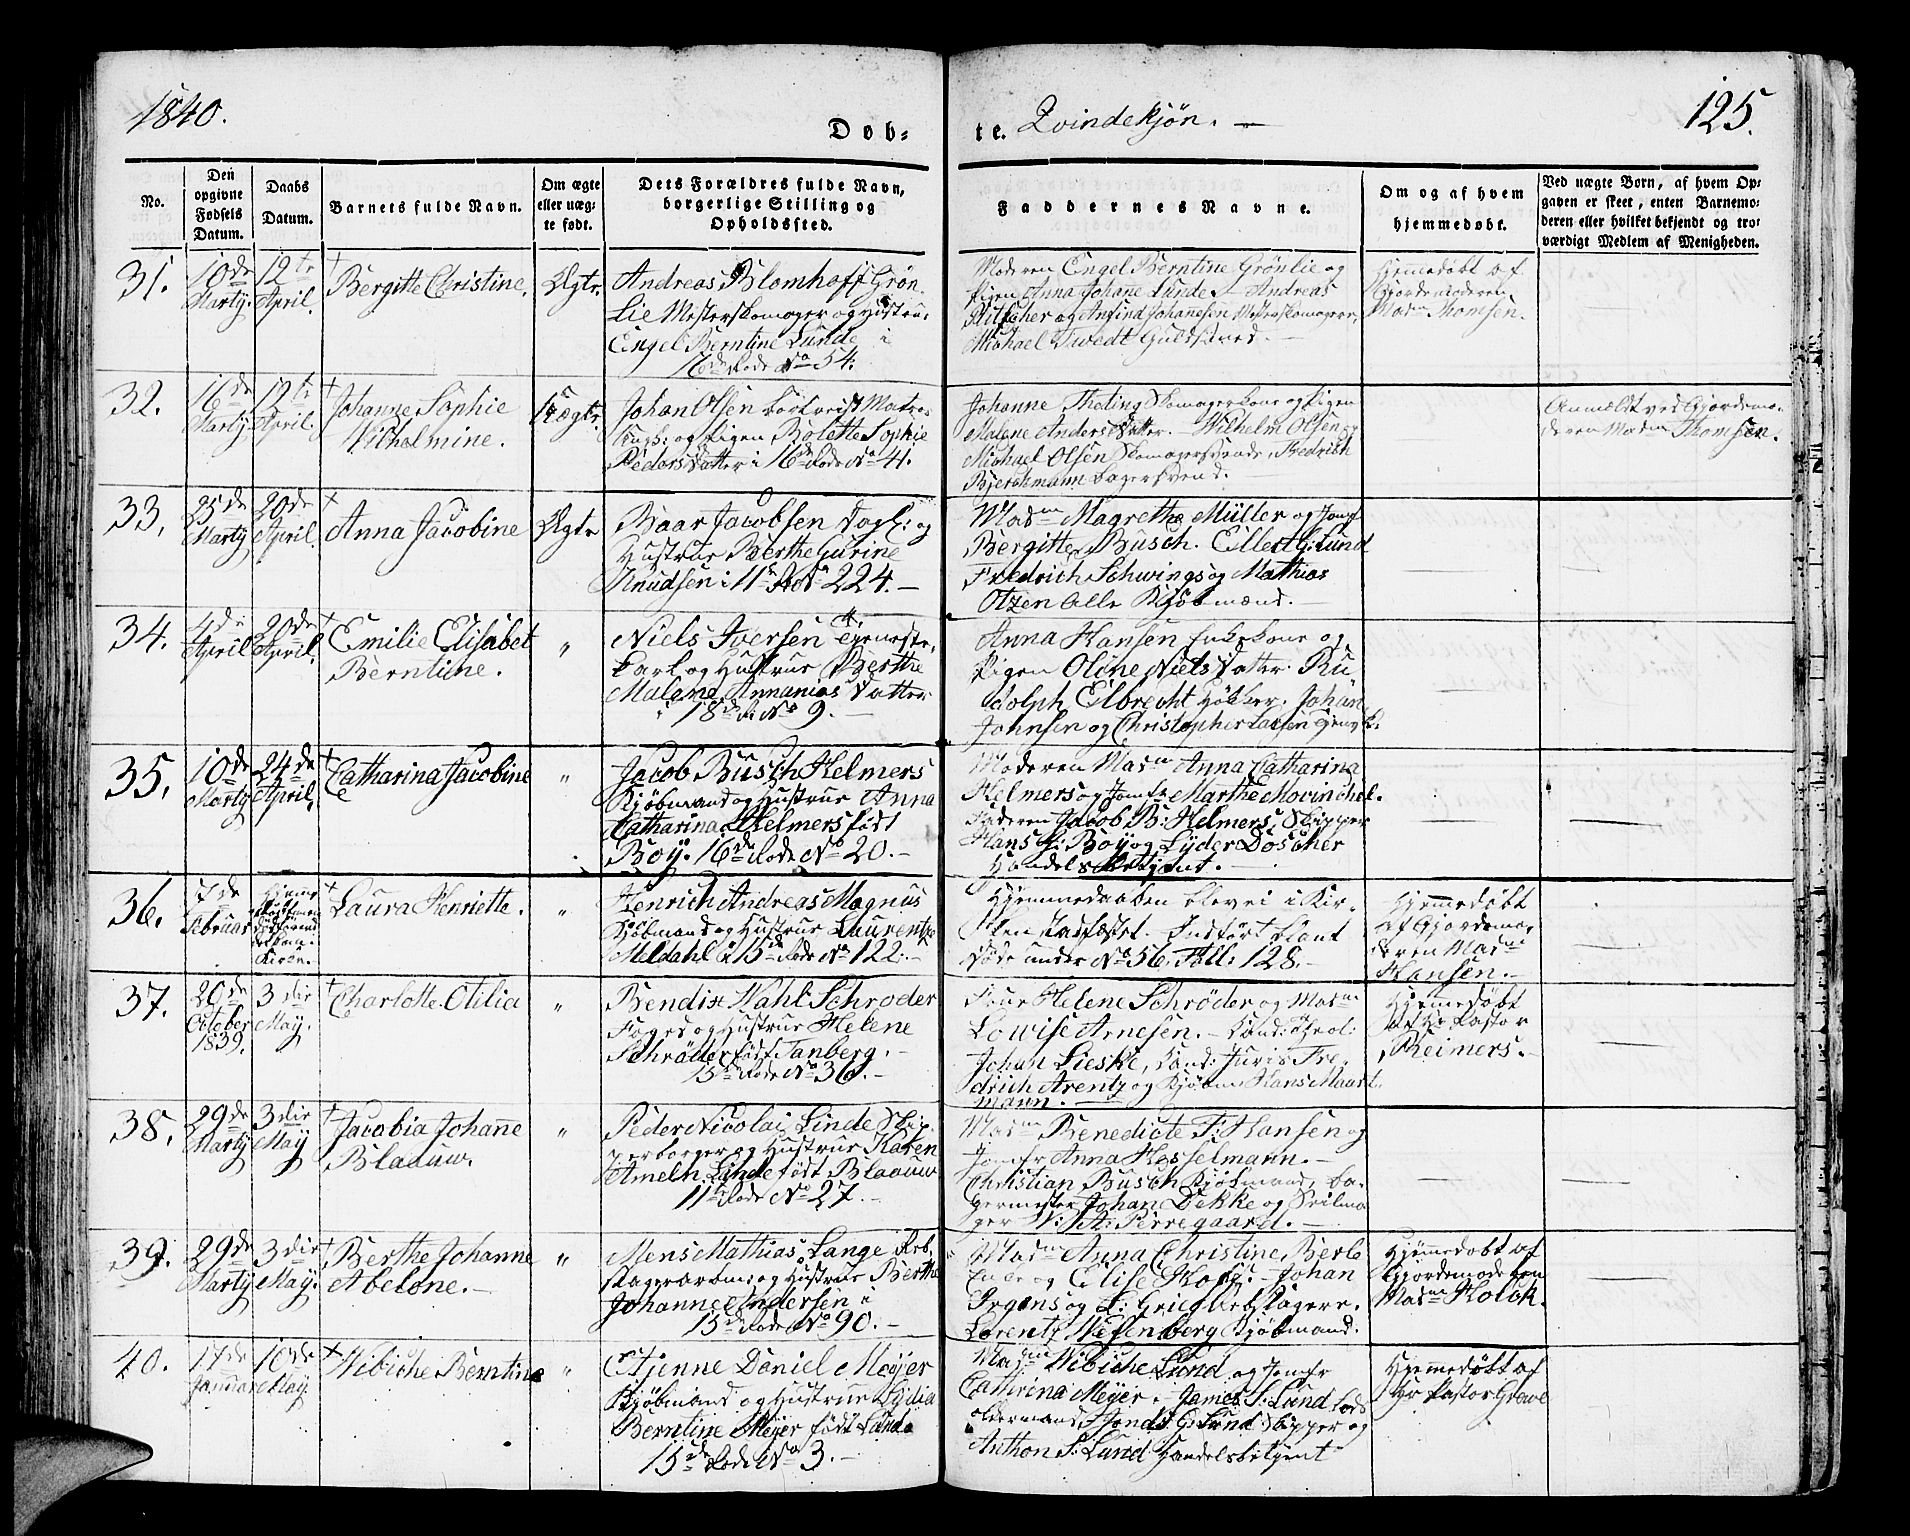 1840.
Døb-
te. Qvindekjøn. —
125.
No.
Den opgivne Fødsels Datum.
Daabs Datum.
Barnets fulde Navn.
Om ægte eller uægte født.
Dets Forældres fulde Navn, borgerlige Stilling og Opholdssted.
Faddernes Navne.
Om og af hvem hjemmedøbt.
Ved uægte Børn, af hvem Opgaven er skeet, enten Barnemoderen eller hvilket bekjendt og troværdigt Medlem af Menigheden.
31.
10de Martÿ
12te April.
Bergitte Christine.
Ægte.
Andreas Blomhoff Grøn
lie Mesterskomager og Hustrue
Engel Berntine Lunde i
16de Rode No 54.
Moderen Engel Berntine Grønlie og
Pigen Anna Johane Lunde. Andreas
og Anfind Johanesen Mesterskomagere,
Michael Twedt Guldsvend. —
Hjemmedøbt af
Gjordemoderen
Madm Thomsen.
32.
16de Martÿ
12te April.
Johanne Sophie
Wilhelmine.
Uægte.
Johan Olsen Matros
og Pigen Bolette Sophie
Pedersdatter i 16de Rode No 41.
Johanne Theting Skomagerkone og Pigen
Malene Andersdatter. Wilhelm Olsen og
Michael Olsen Skomagersvende, Fredrich
Bjerckmann bagersvend.
Anmeldt ved Gjordemo-
deren Madm Thomsen.
33.
25de Martÿ
20de April.
Anna Jacobine
Ægte
Baar Jacobsen Dagl: og
Hustrue Berthe Gurine
Knudsen i 11te R No 224. —
Madm Magrethe Müller og Jomf
Bergitte Busch. Eilert G: Lund
Fredrich Schwings og Mathias
Otzen alle Kjøbmænd. —
34.
4de April
20de April.
Emilie Elisabet
Berntine.
"
Niels Iversen Tjeneste-
karl og Hustrue Berthe
Malene Annaniasdatter
i 18de R. No 9. —
Anna Hansen Enkekone og
Pigen Oline Nielsdatter. Ru
dolph Elbrecht Høkker. Johan
Johnsen og Christopher Larsen Tjenestk:
35.
10de Martÿ
24de April.
Catharina Jacobine
"
Jacob Busch Helmers
Kjøbmand og Hustrue Anna
Catharina Helmers født
Boÿ. 16de Rode No 20. —
Moderen Madm Anna Catharina
Helmers og Jomfr Marthe Mowinchel.
Faderen Jacob B: Helmers, Skipper
Hans H: Boÿ og Lÿder Döscher
Handelsbetjent. —
36.
7de Februar
Laura Henriette.
"
Henrich Andreas Magnus
Kjøbmand og Hustrue Laurentze
Meldahl i 15de Rode No 122. —
Hjemmedaaben blev ei i Kir-
ken stadfæstet. Indført blant
Døde under No 56. Foll: 128. —
Hjemmedøbt
af Gjordemo-
deren Madm
Hansen. —
37.
20de October 1839.
3die May.
Charlotte Otilia
"
Bendix Wahl Schrøder
Foged og Hustrue Helene
Schrøder født Tanberg. —
15de Rode No 36. —
Frue Helene Schrøder og Madm
Lowise Arnesen. — Cand: Theol:
Johan Lieske, Cand: Juris Fre-
drich Arentz og Kjøbm Hans Maart
mann. —
Hjemmedøbt
af Hr. Pastor
Reimers. —
38.
29de Martÿ
3die Maÿ
Jacobia Johanne
Blaauw.
"
Peder Nicolai Linde Skip-
perborger og Hustrue Karen
Ameln Linde født Blaauw
11te Rode No 27. —
Madm Benedicte F: Hansen og
Jomfr Anna Hesselmann. —
Christian Busch Kjøbmand, Ba-
germester Johan Dekke og Seilma-
ger N: A: Perregaard. —
39.
29de Martÿ
3die May.
Berthe Johanne
Abelone. —
"
Mens Mathias Lange Reb-
slager og Hustrue Berthe
Johanne Andersen i
15de Rode No 90. —
Madm Anna Christine Berlo
Enke og Elise Koss. — Johan
Irgens og L: Grieg Rebslagere.
Lorentz Wesenberg Kjøbmand.
Hjemmedøbt af
Gjordemoderen
Madm Holck.
40.
17de Januar
10de May.
Wibiche Berntine
"
Stjenne Daniel Meÿer
Kjøbmand og Hustrue Lÿdia
Berntine Meÿer født Lund
15de Rode No 3. —
Madm Wibiche Lund og Jomfr
Cathrina Meÿer. James S: Lund Lods
oldermand, G: Lund Skipper og
Anthon S: Lund Handelsbetjent
Hjemmedøbt af
Hr Pastor Grave